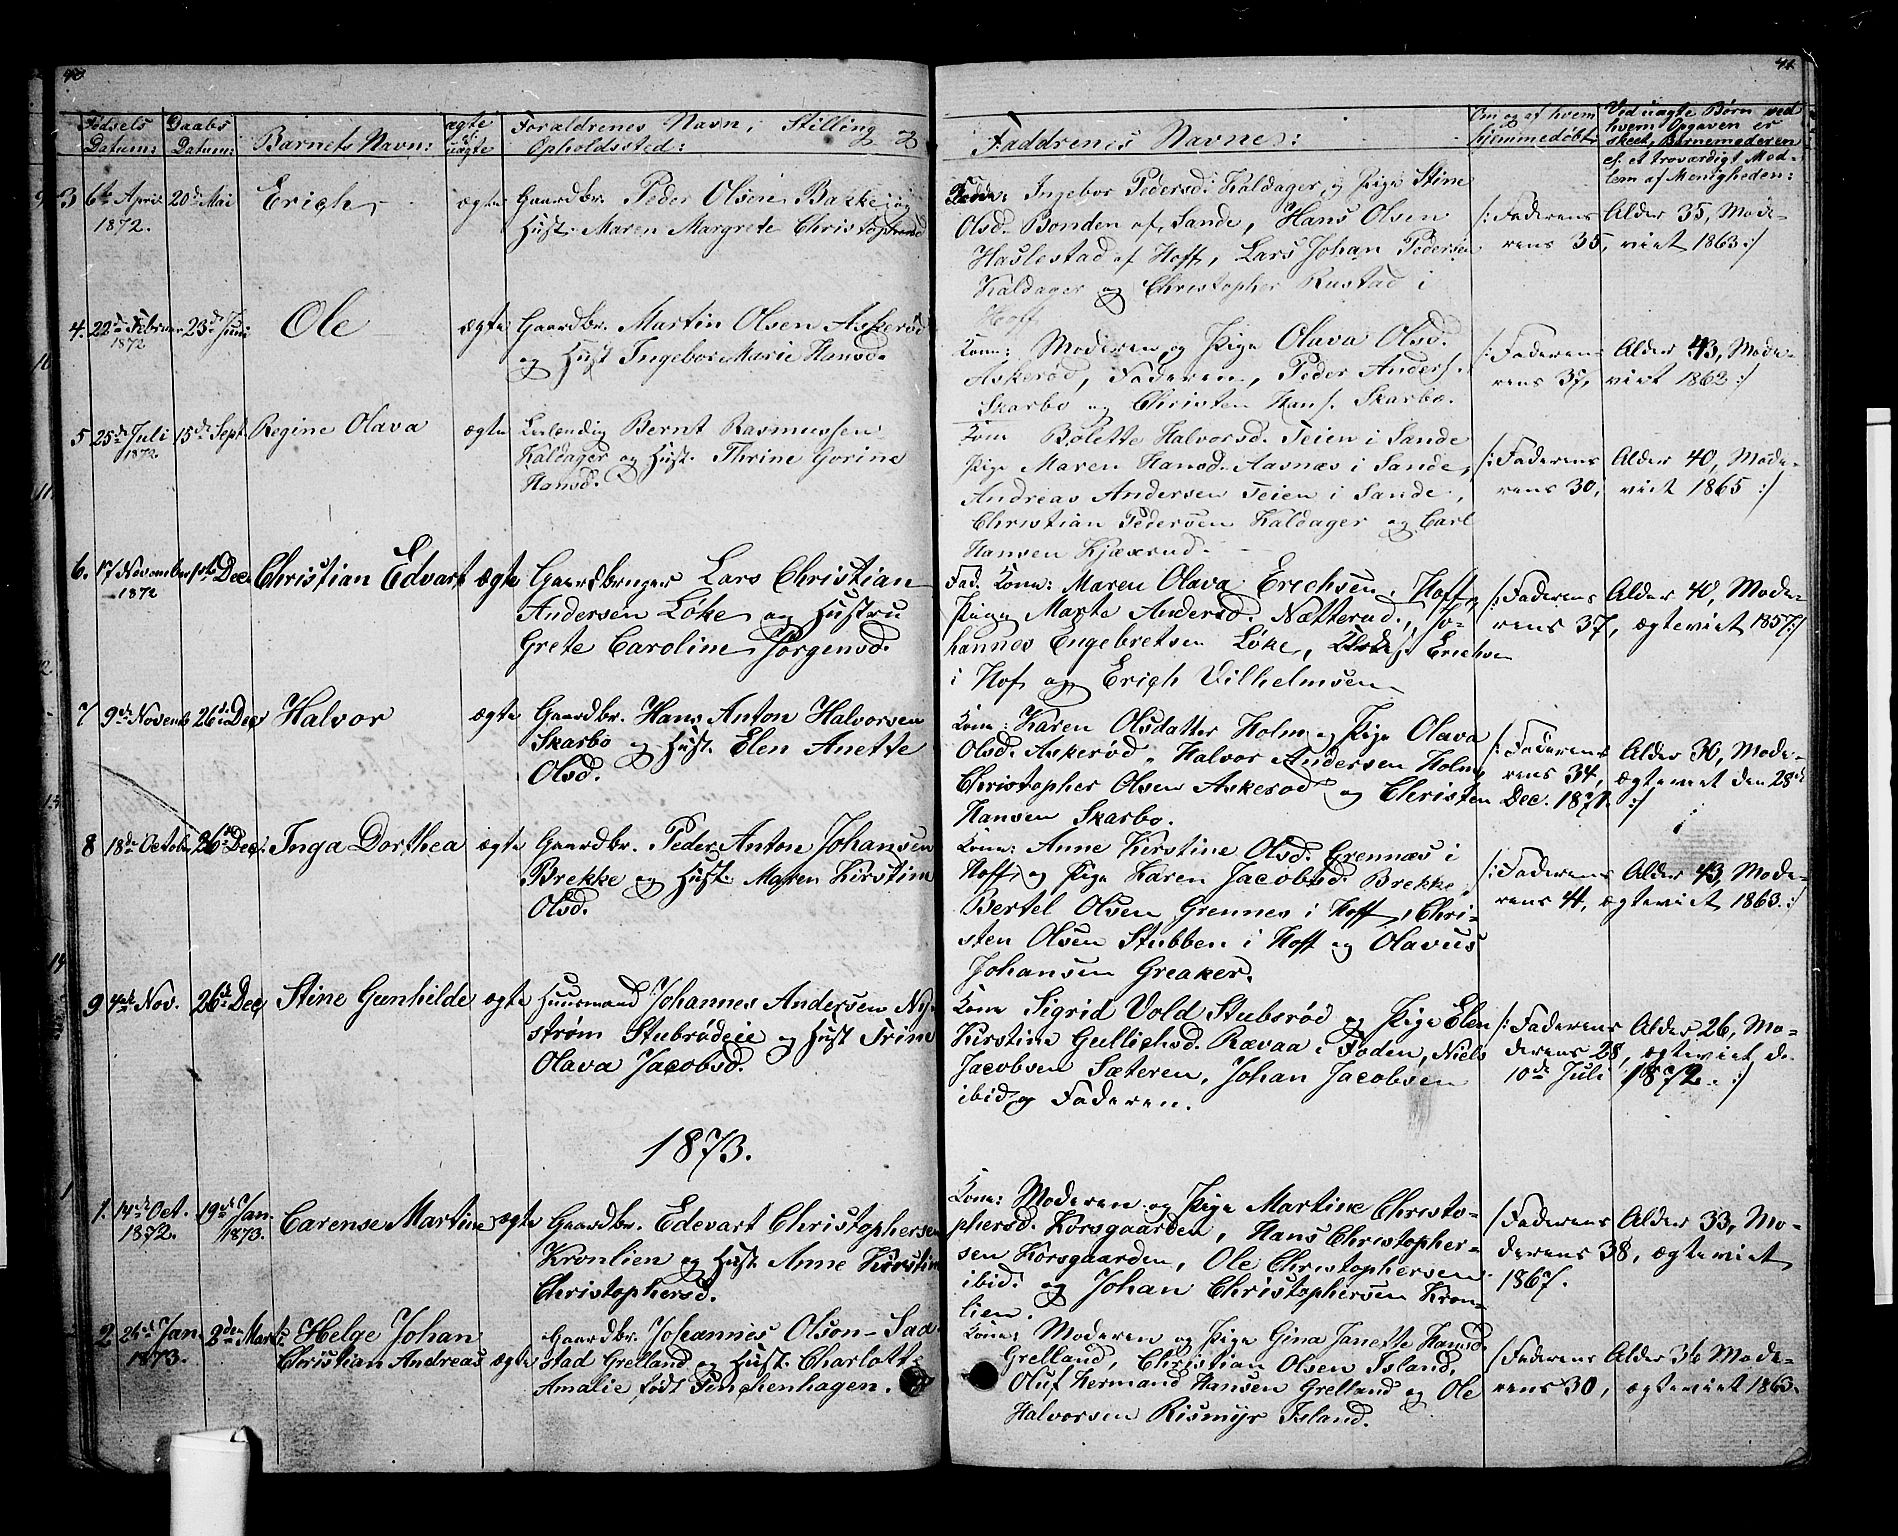 40
41
Fødsels Datum:
Daabs Datum:
Barnets Navn:
ægte el. uægte
Forældrenes Navn, Stilling og
Opholdssted:
Faddrenes Navne:
Om og af hvem
hjemmedøbt
Ved uægte Børn ved
hvem Opgaven er
skeet, Barnemoderen
el. et troværdigt Med-
lem af Menigheden:
3 6te April 20de Mai Erich ægte Gaardbr. Peder Olsen Bakke og
1872. Hust. Maren Margrete Christophersd
Fadd: Ingebor Pedersd. Kaldager, og Pige Stine
Olsd. Bonden af Sande, Hans Olsen
Haslestad af Hoff, Lars Johan Pedersen
Kaldager og Christopher Rustad i
Hoff
/: Faderens Alder 35, Mode-
rens 35, viet 1863 :/
4. 22de Februar 23de Juni Ole ægte Gaardbr. Martin Olsen Askerød
1872 og Hust Ingebor Marie Hansd.
Kone: Moderen, og Pige Olava Olsd.
Askerød, Faderen, Peder Anders.
Skarbo og Christen Hans. Skarbo.
/: Faderens Alder 43, Mode-
rens 37, viet 1862 :/
5 25de Juli 15de Sept. Regine Olava ægte Leilænding Bernt Rasmussen
1872 Kaldager og Hust. Thrine Gorine
Hansd.
Kone Bolette Halvorsd. Teien i Sande
Pige Maren Hansd. Aasnæs i Sande,
Andreas Andersen Teien i Sande,
Christian Pedersen Kaldager og Carl
Hansen Kjæxrud.
/: Faderens Alder 40, Mode-
rens 30, viet 1865 :/
6. 17 November 1ste Dec. Christian Edvart ægte Gaardbruger Lars Christian
1872 Andersen Løke og Hustru
Grete Caroline Jørgensd.
Fad. Kone: Maren Olava Erichsen, Hoff,
Pige Marte Andersd. Nætterud, Jo-
hannes Engebretsen Løke, Erichsen
i Hof og Erich Vilhelmsen
/: Faderens Alder 40, Mode-
rens 37, ægteviet 1857 :/
7 9de Novemb 26de Dec Halvor ægte Gaardbr. Hans Anton Halvorsen
Skarbo og Hust. Elen Anette
Olsd.
Kone: Karen Olsdatter Holm og Pige Olava
Olsd. Askerød, Halvor Andersen Holm,
Christopher Olsen Askerød og Christen
Hansen Skarbo.
/: Faderens Alder 30, Mode-
rens 34, ægteviet den 28de
Dec. 1871. :/
8 18de Octobr 26de Dec: Inga Dorthea ægte Gaardbr. Peder Anton Johansen
Brekke og Hust. Maren Kirstine
Olsd.
Kone: Anne Kirstine Olsd. Grennæs i
Hoff, og Pige Karen Jacobsd. Brekke,
Bertel Olsen Grennes i Hoff, Chri-
sten Olsen Stubben i Hoff og Olavus
Johansen Greaker.
/: Faderens Alder 43, Mode-
rens 41, ægteviet 1863. :/
9 4de Nov. 26de Dec Stine Gunhilde ægte Huusmand Johannes Andersen Ny-
strøm Stubrødeie og Hust Trine
Olava Jacobsd.
Kone Sigrid Vold Stubsrød og Pige Elen
Kirstine Gullichsd. Rævaa i Foden, Niels
Jacobsen Sæteren, Johan Jacobsen
ibid og Faderen.
/: Faderens Alder 26, Mo-
derens 28, ægteviet d.
10de Juli 1872. :/
1873.
1. 14de Oct. 19de Jan. Carense Martine ægte Gaardbr. Edevart Christophersen
1872. 1873. Kronlien og Hust. Anne Kirstine
Christophersd.
Kone: Moderen og Pige Martine Christo-
phersd. Korsgaarden, Hans Christopher-
sen Korsgaarden, Ole Christophersen
ibid. og Johan Christophersen Kron-
lien.
/ Faderens Alder 33, Mo-
derens 38, ægteviet
1867.
2 26de Jan. 2den Marts Helge Johan Gaardbr. Johannes Olson Sad-
1873. Christian Andreas ægte stad Grelland og Hust. Charlott
Amalie født Penchenhagen.
Kone: Moderen og Pige Gina Janette Hansd.
Grelland, Christian Olsen Island,
Oluf Hermand Hansen Grelland og Ole
Halvorsen Rismyr Island.
/ Faderens Alder 36 Mode-
rens 30, ægteviet 1863.